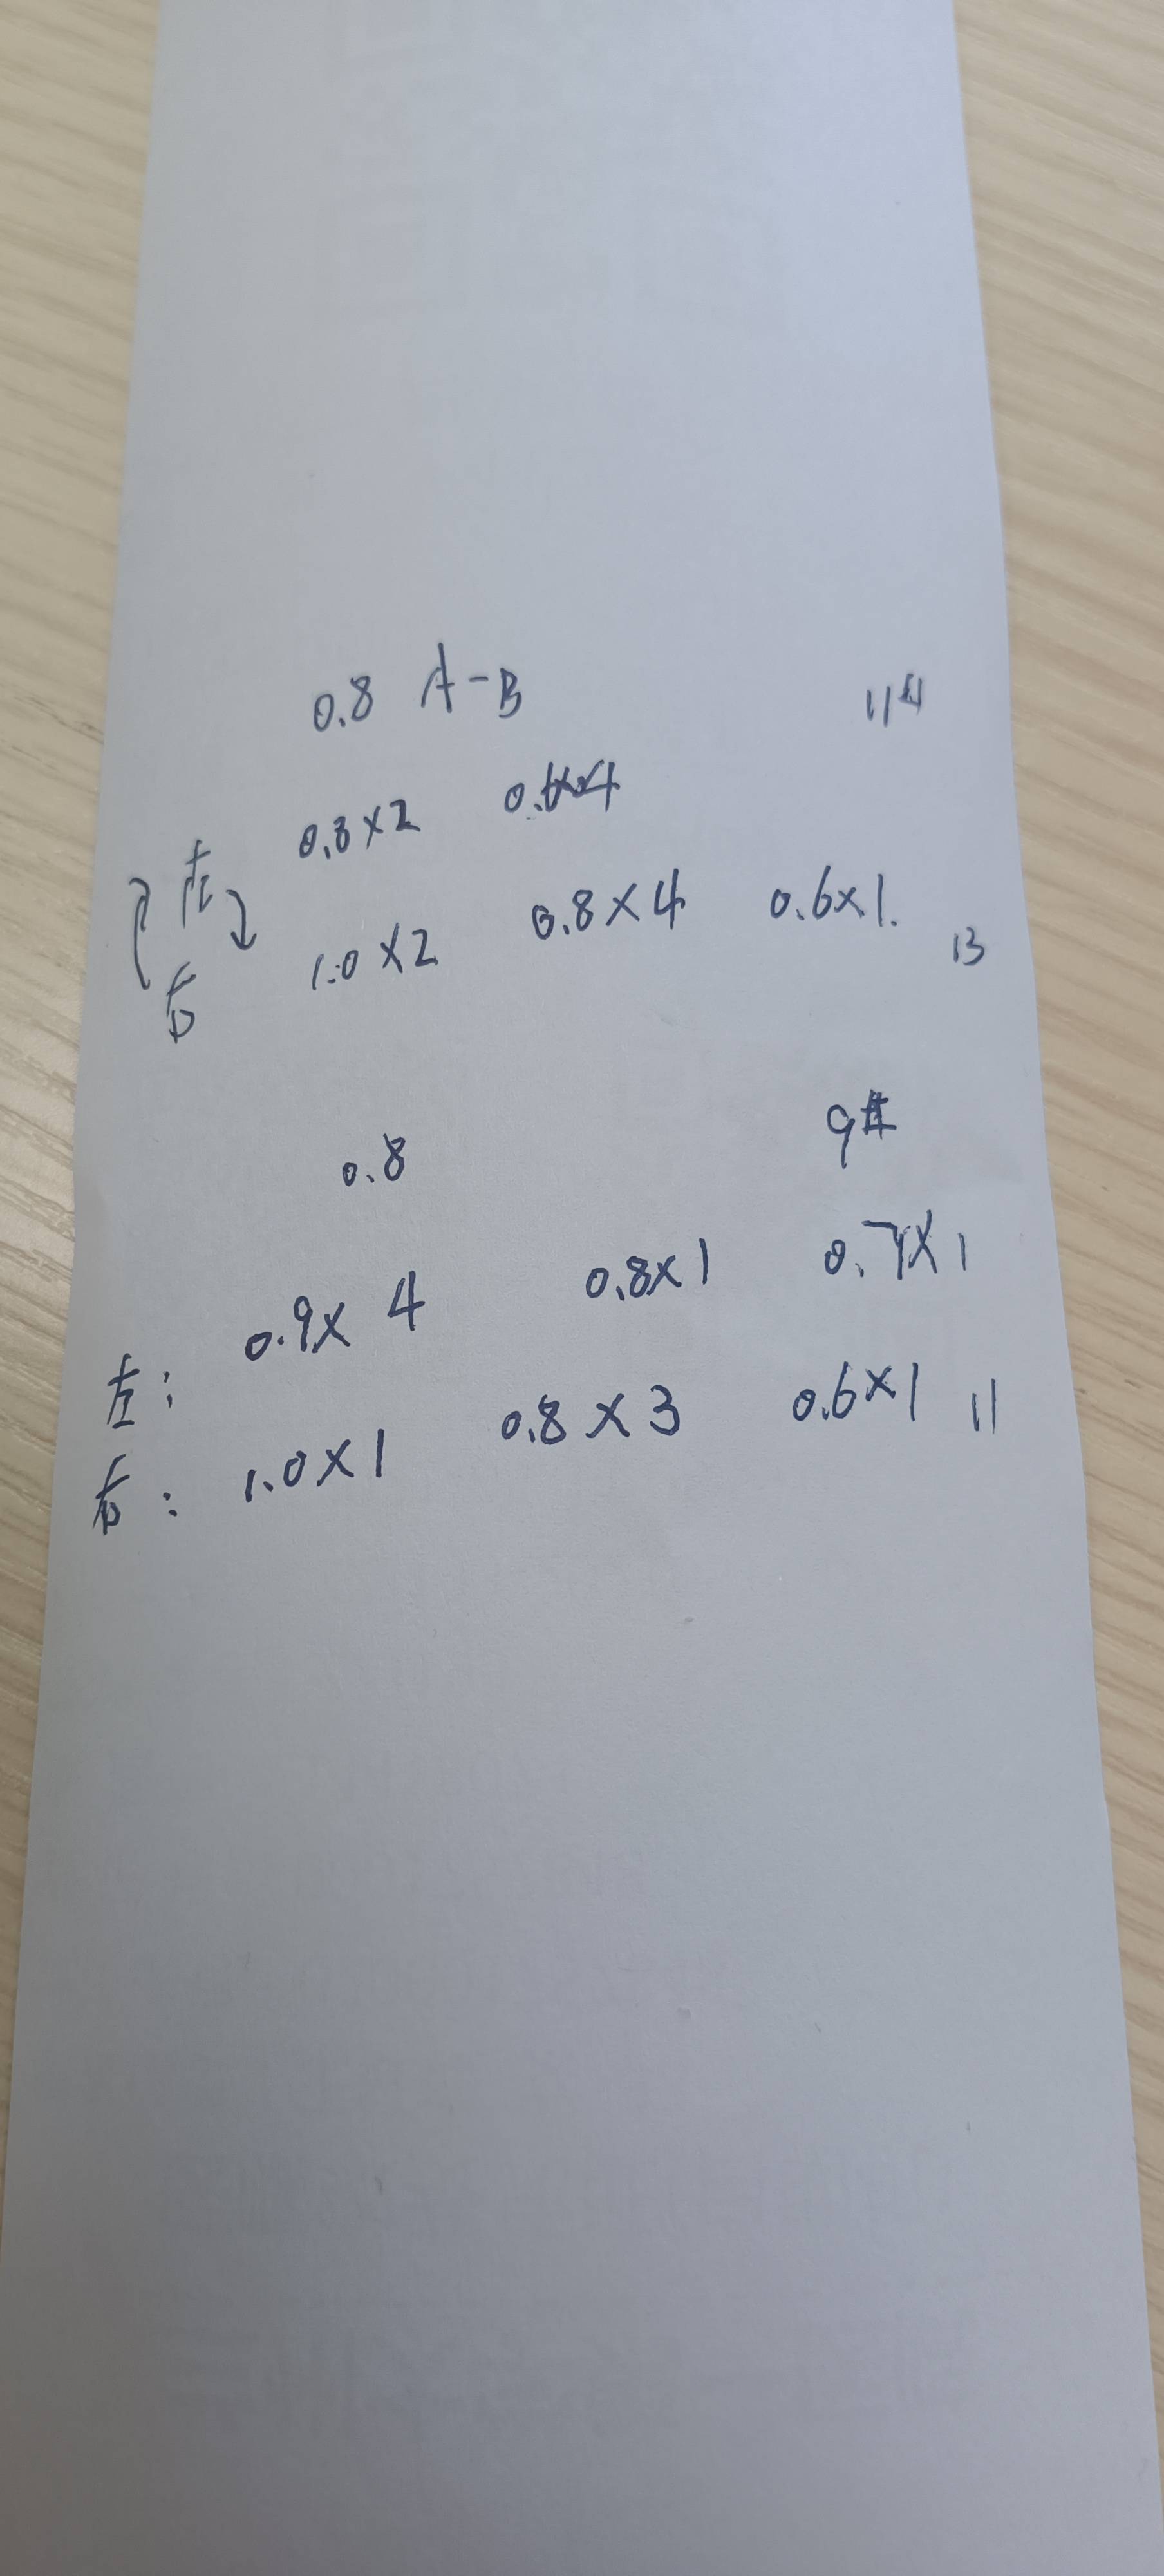 0.8 A-B 11#
左 0.8×2 0.6×4
右 1.0×2 0.8×4 0.6×1. 13
0.8 9#
左: 0.9×4 0.8×1 0.7×1
右: 1.0×1 0.8×3 0.6×1 11